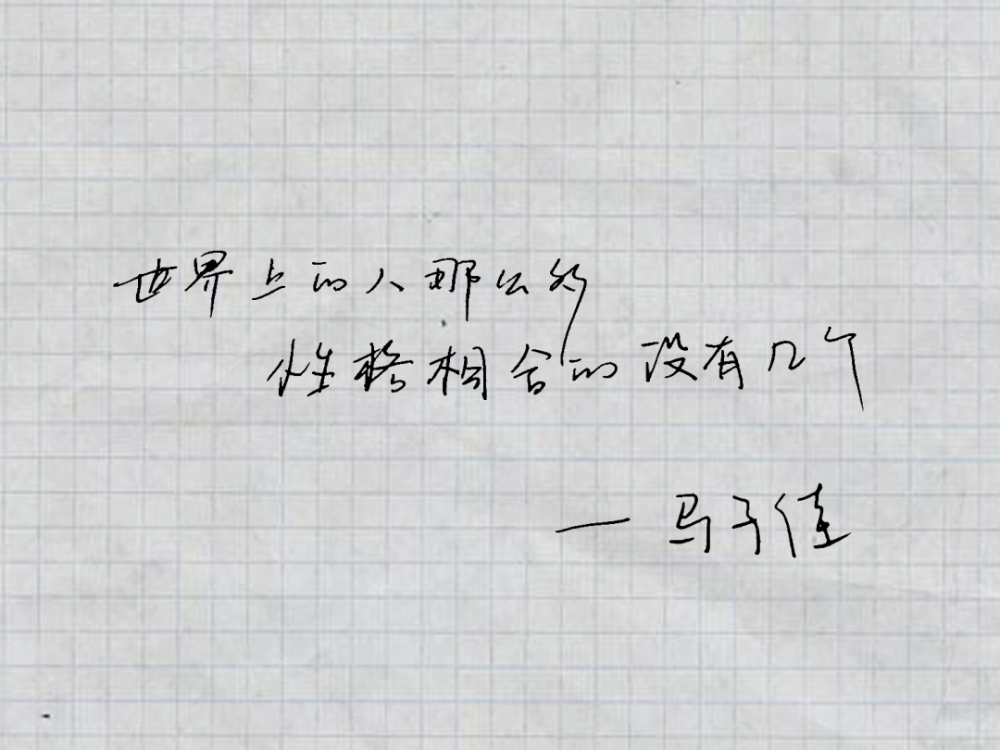 世界上的人那么多
性格相合的没有几个
— 马子佳